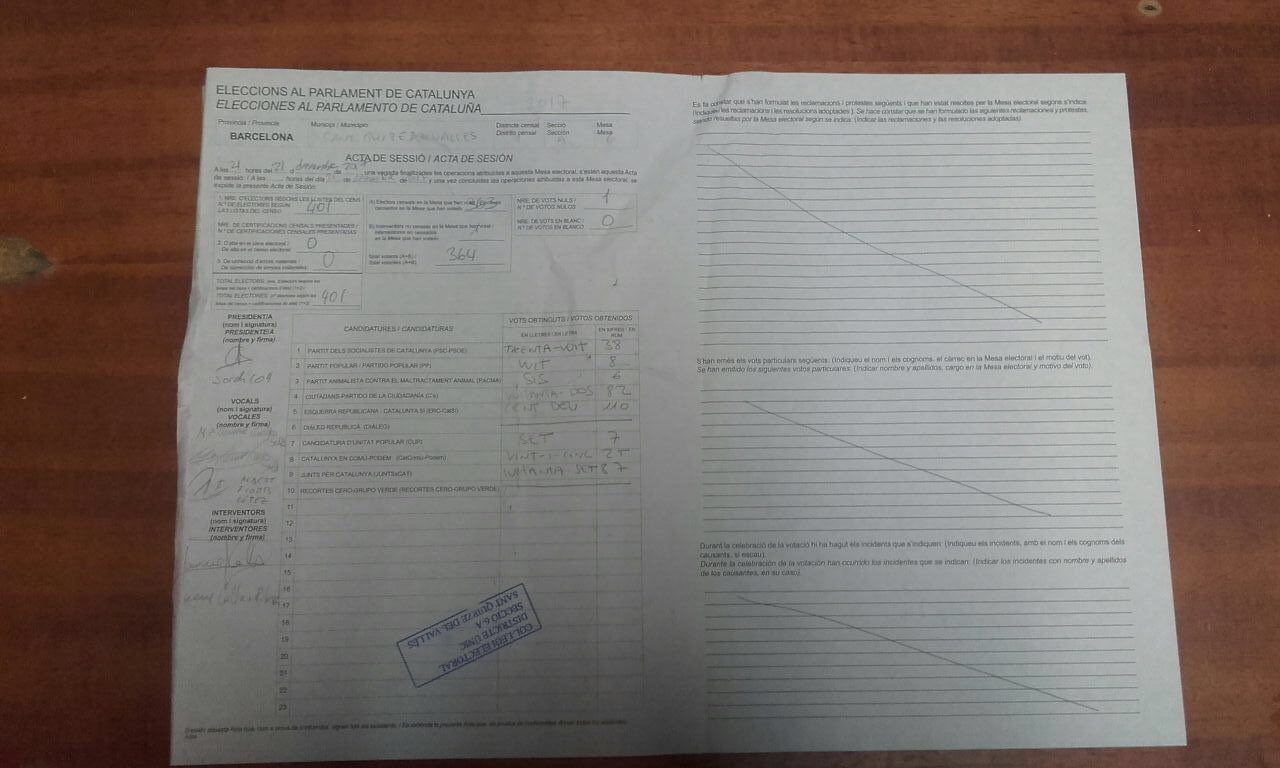 ELECCIONS AL PARLAMENT DE CATALUNYA
ELECCIONES AL PARLAMENTO DE CATALUÑA 2017
Província / Provincia Municipi / Municipio Districte censal Secció Mesa
Distrito censal Sección Mesa
BARCELONA SANT QUIRZE DEL VALLES
ACTA DE SESSIÓ / ACTA DE SESIÓN
A les 21 hores del 21 d de una vegada finalitzades les operacions atribuïdes a aquesta Mesa electoral, s'estén aquesta Acta
de sessió. / A las hores del día de de y una vez concluidas las operaciones atribuidas a esta Mesa electoral, se
expide la presente Acta de Sesión:
1. NRE. D'ELECTORS SEGONS LES LLISTES DEL CENS
N.º DE ELECTORES SEGÚN
LAS LISTAS DEL CENSO 401
NRE. DE CERTIFICACIONS CENSALS PRESENTADES /
N.º DE CERTIFICACIONES CENSALES PRESENTADAS
2. D'alta en el cens electoral /
De alta en el censo electoral 0
3. De correcció d'errors materials /
De corrección de errores materiales 0
TOTAL ELECTORS
TOTAL ELECTORES 401
A) Electors censats en la Mesa que han votat /
censados en la Mesa que han votado
B) Interventors no censats en la Mesa que han votat /
Interventores no censados
en la Mesa que han votado
Total votants (A+B) /
Total votantes (A+B) 364
NRE. DE VOTS NULS /
N.º DE VOTOS NULOS 1
NRE. DE VOTS EN BLANC /
N.º DE VOTOS EN BLANCO 0
PRESIDENT/A
(nom i signatura)
PRESIDENTE/A
(nombre y firma)
VOCALS
(nom i signatura)
VOCALES
(nombre y firma)
ALBERT
INTERVENTORS
(nom i signatura)
INTERVENTORES
(nombre y firma)
CANDIDATURES / CANDIDATURAS VOTS OBTINGUTS / VOTOS OBTENIDOS
EN LLETRES / EN LETRA EN XIFRES / EN NÚM.
1 PARTIT DELS SOCIALISTES DE CATALUNYA (PSC-PSOE) TRENTA-VUIT 38
2 PARTIT POPULAR / PARTIDO POPULAR (PP) VUIT 8
3 PARTIT ANIMALISTA CONTRA EL MALTRACTAMENT ANIMAL (PACMA) SIS 6
4 CIUTADANS-PARTIDO DE LA CIUDADANÍA (C's) VUITANTA-DOS 82
5 ESQUERRA REPUBLICANA - CATALUNYA SÍ (ERC-CatSí) CENT DEU 110
6 DIÀLEG REPUBLICÀ (DIÀLEG)
7 CANDIDATURA D'UNITAT POPULAR (CUP) SET 7
8 CATALUNYA EN COMÚ-PODEM (CatComú-Podem) VINT-I-CINC 25
9 JUNTS PER CATALUNYA (JUNTSxCAT) VUITANTA SET 87
10 RECORTES CERO-GRUPO VERDE (RECORTES CERO-GRUPO VERDE)
11
12
13
14
15
16
17
18
19
20
21
22
23
COL·LEGI ELECTORAL
DISTRICTE ÚNIC
SECCIÓ 6-A
SANT QUIRZE DEL VALLÈS
Es fa constar que s'han formulat les reclamacions i protestes següents i que han estat resoltes per la Mesa electoral segons s'indica:
(Indiqueu les reclamacions i les resolucions adoptades ). Se hace constar que se han formulado las siguientes reclamaciones y protestas,
siendo resueltas por la Mesa electoral según se indica: (Indicar las reclamaciones y las resoluciones adoptadas)
S'han emès els vots particulars següents: (Indiqueu el nom i els cognoms, el càrrec en la Mesa electoral i el motiu del vot).
Se han emitido los siguientes votos particulares: (Indicar nombre y apellidos, cargo en la Mesa electoral y motivo del voto).
Durant la celebració de la votació hi ha hagut els incidents que s'indiquen: (Indiqueu els incidents, amb el nom i els cognoms dels
causants, si escau).
Durante la celebración de la votación han ocurrido los incidentes que se indican: (Indicar los incidentes con nombre y apellidos
de los causantes, en su caso).